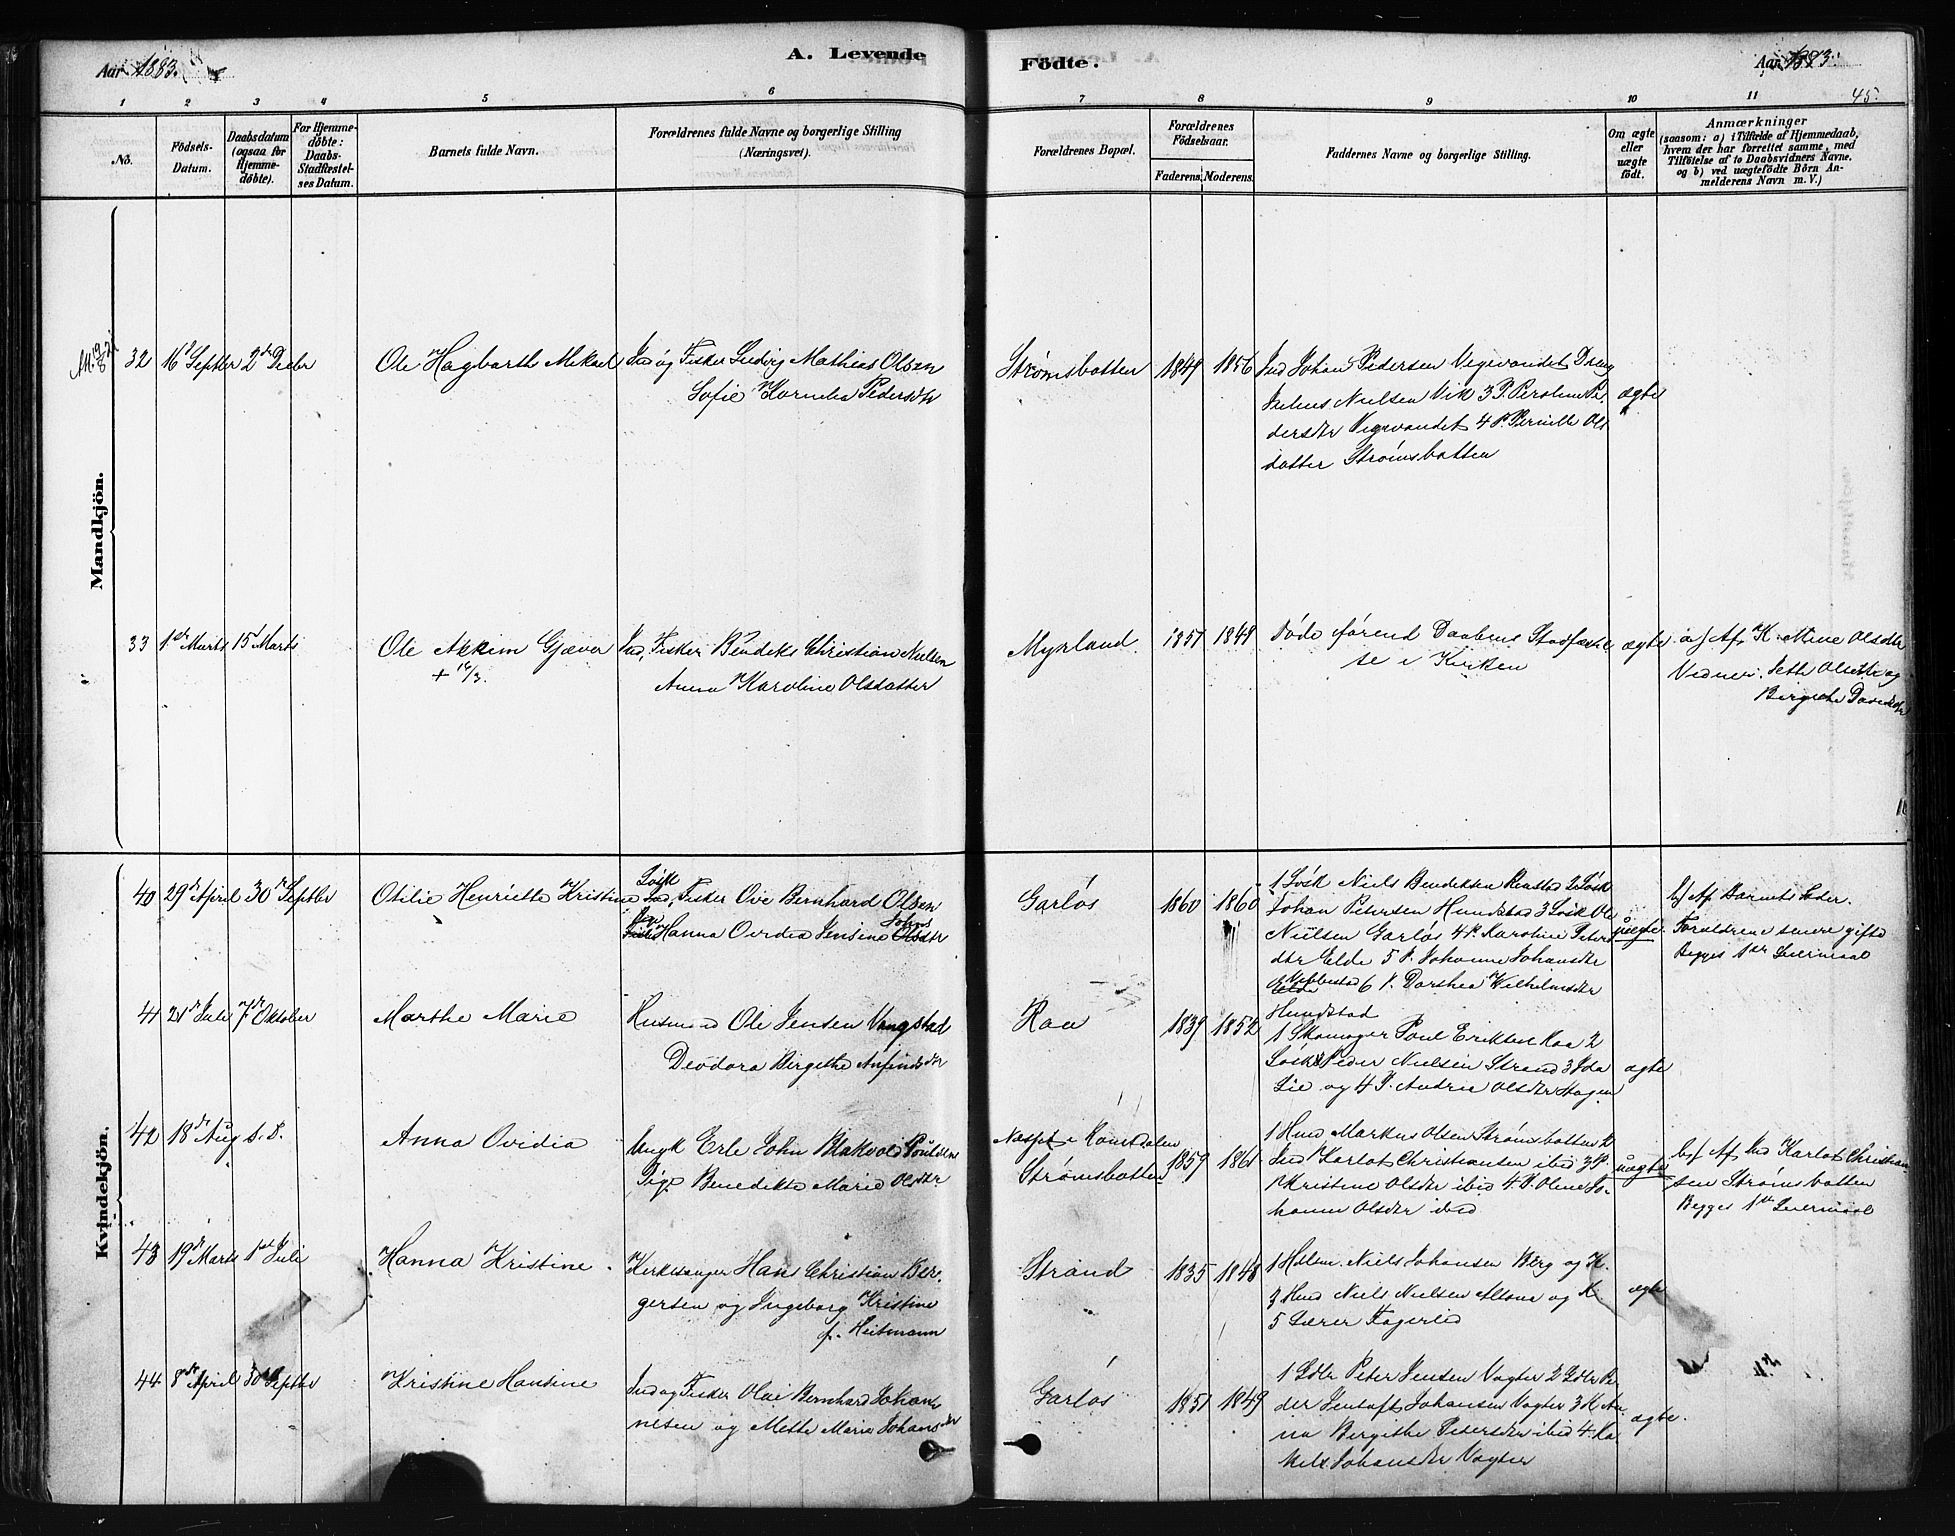 Aar 1883.
A. Levende
Födte.
Aar 1883.
45.
1 2 3 4 5 6 7 8 9 10 11
No.
Födsels-
Datum.
Daabsdatum
(ogsaa for
Hjemme-
döbte).
For Hjemme-
döbte:
Daabs-
Stadfæstel-
ses Datum.
Barnets fulde Navn.
Forældrenes fulde Navne og borgerlige Stilling
(Næringsvei).
Forældrenes Bopæl.
Forældrenes
Födselsaar.
Faderens. Moderens.
Faddernes Navne og borgerlige Stilling.
Om ægte
eller
uægte
födt.
Anmærkninger
(saasom: a) i Tilfælde af Hjemmedaab,
hvem der har forrettet samme, med
Tilföielse af to Daabsvidners Navne.
og b) ved uægtefödte Börn An-
melderens Navn m. V.)
Mandkjön.
32 16d Septbr 2de Decbr
Ole Hagbarth Mikael
Ind og Fisker Ludvig Mathias Olsen
Sofie Kornelia Pedersdtr
Strömsbotten
1849 1856
Ind Johan Pedersen Vegevandet Dreng
Julius Nielsen Vik 3 P. Peroline Pe-
dersdtr Vegevandet 4 P. Pernille Ols
datter Strömsbotten
ægte
33 1ste Marts 15 Marts
Ole Akkim Gjæver
+ 16/3.
Ind, Fisker Bendiks Christian Nielsen
Anna Karoline Olsdatter
Myrland.
1857 1849
Döde förend Daabens Stadfæstel
se i Kirken
ægte
a) Af K. Mine Olsdtr
Vidner: Jette Olsdtr og
Birgithe Davidsdtr
Kvindekjön.
40 29d April 30 Septbr
Otilie Henriette Kristine
Lösk
Ind, Fisker Ove Bernhard Olsen
Hanna Ovidia Jensine Johns
Olsdtr
Garlös
1860 1860
1 Lösk Niels Bendiksen Renstad 2 Lösk
Johan Petersen Hundstad 3 Lösk Ole
Nielsen Garlös 4 P. Karoline Peters
dtr Elde 5 P. Johanne Johansdtr
Elde 6 P. Dorthea Vilhelmsdtr
Hundstad
uægte
b) Af Barnets Fader.
Forældrene senere gifte
Begges 1ste Leiermaal
41 21d Juli 7d Oktober
Marthe Marie
Husmand Ole Jensen Vangstad
Deodora Birgithe Anfindsdtr
Raa
1839 1852
1 Skomager Poul Eriksen Raa 2
Lösk Peder Nielsen Strand 3 Ida
Lie og 4 P. Andrea Olsdtr Hagen
ægte
42 18d Aug s. D.
Anna Ovidia
Ungk Erle John Blakvold Poulsen
Pige Benedikte Marie Olsdtr.
Næsset i Romsdalen
Strömsbotten
1859 1861
1 Hmd Markus Olsen Strömsbotten 2
Ind Karlot Christiansen ibid 3 P.
Kristine Olsdtr ibid 4. P. Oline Jo-
hanna Olsdtr ibid
uægte
b) Af Ind Karlot Christian
sen Strömsbotten
Begges 1ste Leiermaal
43 19d Marts 1ste Juli
Hanna Kristine
Kirkesanger Hans Christian Ber-
gersen og Ingeborg Kristine
f. Heitmann
Strand
1835 1848
1 Holm. Niels Johansen Berg og K.
3 Hmd Niels Nielsen Altona og K.
5 Lærer Fagerlid
ægte
44 8de April 30 Septbr
Kristine Hansine
Ind og Fisker Olai Bernhard Johan-
nesen og Mette Maria Johansdtr
Garlös
1851 1849
1 Gdbr Peter Jensen Vogter 2 Gdbr Pe-
der Jentoft Johansen Vogter 3 K An-
na Birgithe Petersdtr ibid 4. Ra-
kel Johansdtr Vogter
ægte.